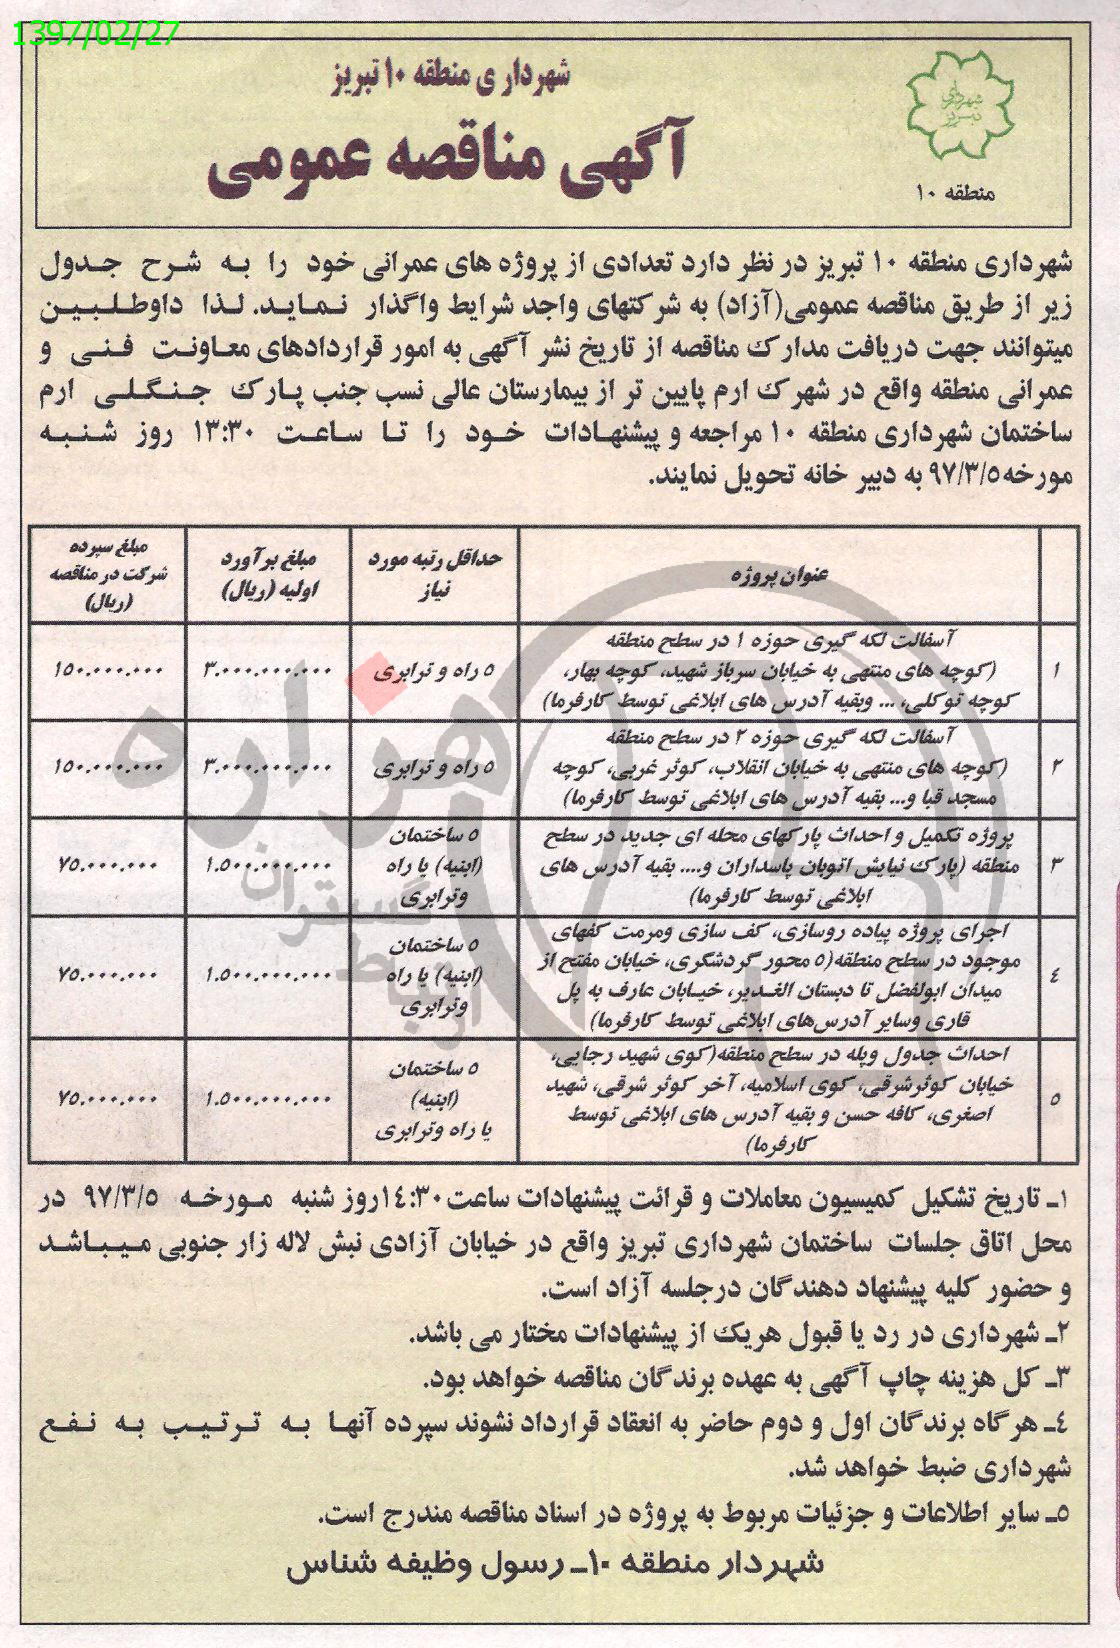 1397/02/27
شهرداری منطقه ۱۰ تبریز
آگهی مناقصه عمومی
شهرداری تبریز
منطقه ۱۰
شهرداری منطقه ۱۰ تبریز در نظر دارد تعدادی از پروژه های عمرانی خود را به شرح جدول
زیر از طریق مناقصه عمومی(آزاد) به شرکتهای واجد شرایط واگذار نماید. لذا داوطلبین
میتوانند جهت دریافت مدارک مناقصه از تاریخ نشر آگهی به امور قراردادهای معاونت فنی و
عمرانی منطقه واقع در شهرک ارم پایین تر از بیمارستان عالی نسب جنب پارک جنگلی ارم
ساختمان شهرداری منطقه ۱۰ مراجعه و پیشنهادات خود را تا ساعت ۱۳:۳۰ روز شنبه
مورخه۹۷/۳/۵ به دبیر خانه تحویل نمایند.
عنوان پروژه
حداقل رتبه مورد
نیاز
مبلغ برآورد
اولیه (ریال)
مبلغ سپرده
شرکت در مناقصه
(ریال)
۱
آسفالت لکه گیری حوزه ۱ در سطح منطقه
(کوچه های منتهی به خیابان سرباز شهید، کوچه بهار،
کوچه توکلی، ... وبقیه آدرس های ابلاغی توسط کارفرما)
۵ راه و ترابری
۳.۰۰۰.۰۰۰.۰۰۰
۱۵۰.۰۰۰.۰۰۰
۲
آسفالت لکه گیری حوزه ۲ در سطح منطقه
(کوچه های منتهی به خیابان انقلاب، کوثر غربی، کوچه
مسجد قبا و... بقیه آدرس های ابلاغی توسط کارفرما)
۵ راه و ترابری
۳.۰۰۰.۰۰۰.۰۰۰
۱۵۰.۰۰۰.۰۰۰
۳
پروژه تکمیل و احداث پارکهای محله ای جدید در سطح
منطقه (پارک نیایش اتوبان پاسداران و.... بقیه آدرس های
ابلاغی توسط کارفرما)
۵ ساختمان
(ابنیه) یا راه
وترابری
۱.۵۰۰.۰۰۰.۰۰۰
۷۵.۰۰۰.۰۰۰
۴
اجرای پروژه پیاده روسازی، کف سازی ومرمت کفهای
موجود در سطح منطقه(۵ محور گردشگری، خیابان مفتح از
میدان ابولفضل تا دبستان الغدیر، خیابان عارف به پل
قاری وسایر آدرس‌های ابلاغی توسط کارفرما)
۵ ساختمان
(ابنیه) یا راه
وترابری
۱.۵۰۰.۰۰۰.۰۰۰
۷۵.۰۰۰.۰۰۰
۵
احداث جدول وپله در سطح منطقه(کوی شهید رجایی،
خیابان کوثرشرقی، کوی اسلامیه، آخر کوثر شرقی، شهید
اصغری، کافه حسن و بقیه آدرس های ابلاغی توسط
کارفرما)
۵ ساختمان
(ابنیه)
یا راه وترابری
۱.۵۰۰.۰۰۰.۰۰۰
۷۵.۰۰۰.۰۰۰
هزاره
گستران
ارتباط
۱ـ تاریخ تشکیل کمیسیون معاملات و قرائت پیشنهادات ساعت۱۴:۳۰روز شنبه مورخه ۹۷/۳/۵ در
محل اتاق جلسات ساختمان شهرداری تبریز واقع در خیابان آزادی نبش لاله زار جنوبی میباشد
و حضور کلیه پیشنهاد دهندگان درجلسه آزاد است.
۲ـ شهرداری در رد یا قبول هریک از پیشنهادات مختار می باشد.
۳ـ کل هزینه چاپ آگهی به عهده برندگان مناقصه خواهد بود.
۴ـ هرگاه برندگان اول و دوم حاضر به انعقاد قرارداد نشوند سپرده آنها به ترتیب به نفع
شهرداری ضبط خواهد شد.
۵ـ سایر اطلاعات و جزئیات مربوط به پروژه در اسناد مناقصه مندرج است.
شهردار منطقه ۱۰ـ رسول وظیفه شناس